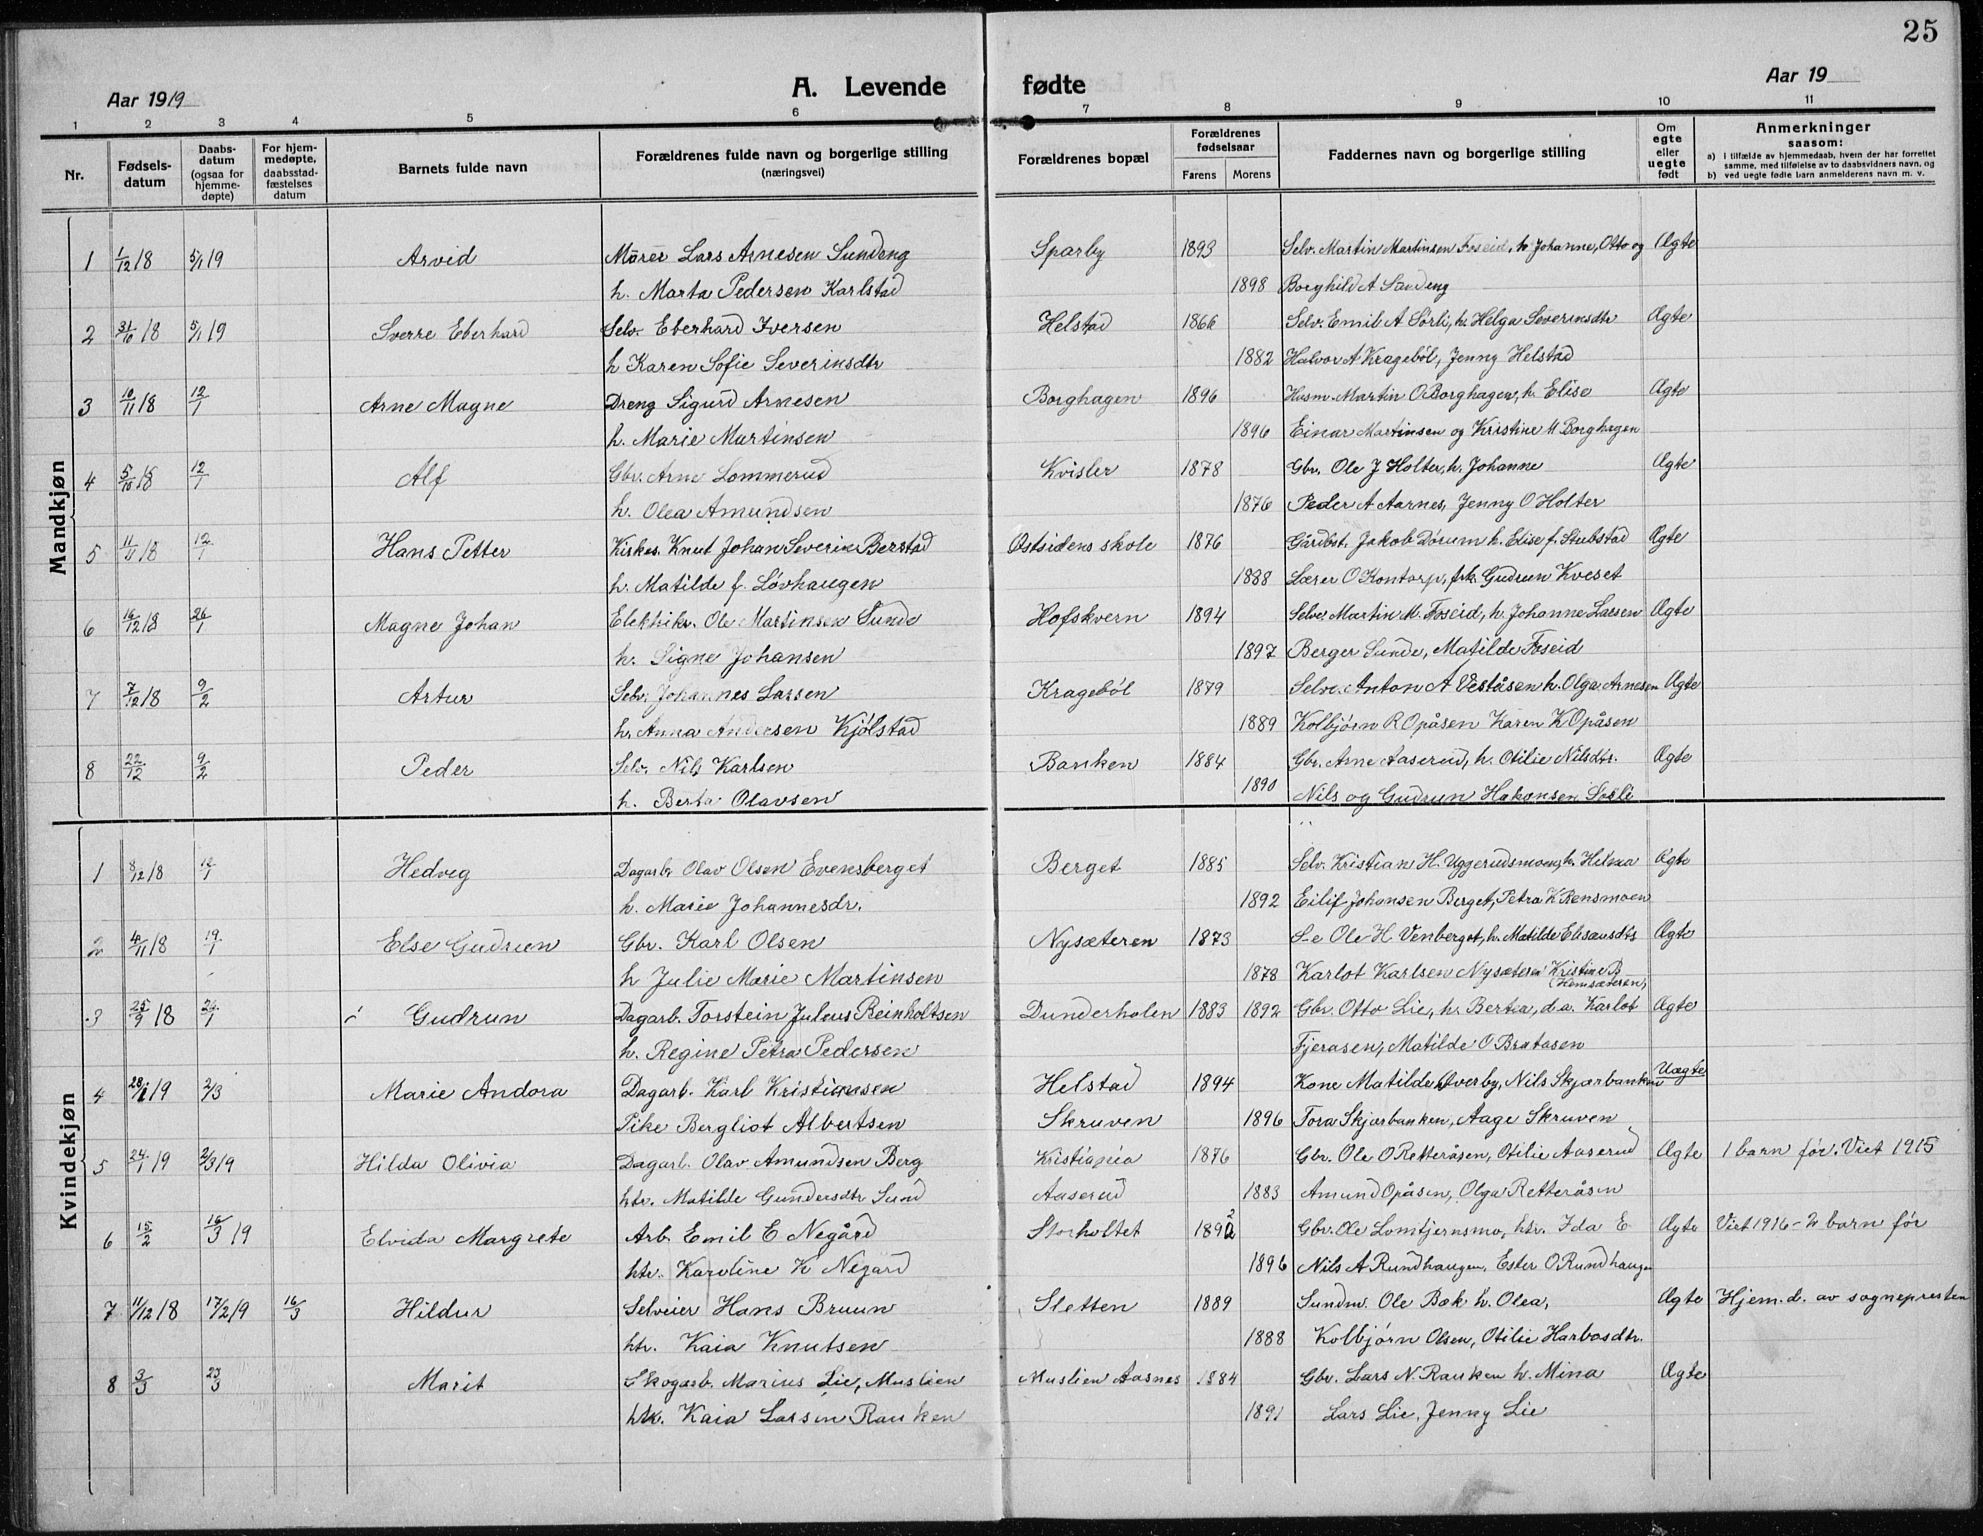 25
A. Levende fødte
Aar 1919
Aar 19
1 2 3 4 5 6 7 8 9 10 11
Nr.
Fødsels-datum
Daabs-datum (ogsaa for hjemme-døpte)
For hjem-medøpte, daabsstad-fæstelses datum
Barnets fulde navn
Forældrenes fulde navn og borgerlige stilling (næringsvei)
Forældrenes bopæl
Forældrenes fødselsaar
Farens Morens
Faddernes navn og borgerlige stilling
Om egte eller uegte født
Anmerkninger saasom:
a) i tilfælde av hjemmedaab, hvem der har forrettet samme, med tilføielse av to daabsvidners navn, og
b) ved uegte fødte barn anmelderens navn m. v.
Mandkjøn
1 1/12 18 5/1 19 Arvid Murer Lars Arnesen Sundeng Sparby 1893 Selv. Martin Martinsen Foseid, h. Johanne, Otto og Ægte
h. Marta Pedersen Karlstad 1898 Borghild A Sundeng
2 31/10 18 5/1 19 Sverre Eberhard Selv. Eberhard Iversen Helstad 1866 Selv. Emil A Sørli, h. Helga Severinsdtr Ægte
h Karen Sofie Severinsdtr 1882 Halvor A Kragebøl, Jenny Helstad
3 10/11 18 12/1 Arne Magne Dreng Sigurd Arnesen Borghagen 1896 Husm. Martin O Borghagen, h. Elise Ægte
h. Marie Martinsen 1896 Einar Martinsen og Kristine M Borghagen
4 5/10 18 12/1 Alf Gbr. Arne Lommerud Kvisler 1878 Gbr. Ole J Holter, h. Johanne Ægte
h. Olea Amundsen 1876 Peder A Aarnes, Jenny O Holter
5 11/11 18 12/1 Hans Petter Kirkes. Knut Johan Severin Berstad Østsidens skole 1876 Gårdbst. Jakob Dørum h. Elise f. Stubstad Ægte
h. Matilde f. Løvhaugen 1888 Lærer O Kontorp, frk. Gudrun Kveset
6 16/12 18 26/1 Magne Johan Elektrikr. Ole Martinsen Sunde Hofskvern 1894 Selv. Martin M. Foseid, h. Johanne Larsen Ægte
h. Signe Johansen 1897 Berger Sunde, Matilde Foseid
7 7/12 18 9/2 Artur Selv. Johannes Larsen Kragebøl 1879 Selve. Anton A Veståsen h. Olga Arnesen Ægte
h. Anna Andersen Kjølstad 1889 Kolbjørn R Opåsen Karen K Opåsen
8 22/12 9/2 Peder Selv. Nils Karlsen Banken 1884 Gbr. Arne Aaserud, h. Otilie Nilsdtr. Ægte
h. Berta Olavsen 1890 Nils og Gudrun Hakonsen
Kvindekjøn
1 8/12 18 12/1 Hedvig Dagarb. Olav Olsen Evensberget Berget 1885 Selv. Kristian H. Uggerudsmoen, h. Hilma Ægte
h. Marie Johannesdr. 1892 Eilif Johansen Berget, Petra K Rensmoen
2 4/11 18 19/1 Else Gudrun Gbr. Karl Olsen Nysæteren 1873 S-e Ole H Venberget, h. Matilde Elisæusdtr Ægte
h Julie Marie Martinsen 1878 Karlot Karlsen Nysæteren Kristine B
(Hemsæteren)
3 25/9 18 26/1 Gudrun Dagarb. Torstein Julius Reinholtsen Dunderholen 1883 1892 Gbr. Otto Lie, h. Bertia, d.a. Karlot Ægte
h. Regine Petra Pedersen Fjeråsen, Matilde O Bratåsen
4 28/1 19 2/3 Marie Andora Dagarb. Karl Kristiansen Helstad 1894 Kone Matilde Øverby, Nils Skjærbanken Uægte
Pike Bergliot Albertsen Skruven 1896 Tora Skjærbanken, Aage Skruven
5 24/1 19 2/3 19 Hilda Olivia Dagarb. Olav Amundsen Berg Kristiania 1876 Gbr. Ole O Retteråsen, Otilie Aaserud Ægte 1 barn før. Viet 1915
htr. Matilde Gundersdtr Sund Aaserud 1883 Amund Opåsen, Olga Retteråsen
6 15/2 16/3 19 Elvida Margrete Arb. Emil E Negård Storholtet 1892 Gbr. Ole Lomtjernsmo, htr. Ida E Ægte Viet 1916 - 2 barn før
htr. Karoline K Negård 1896 Nils A Rundhaugen, Ester O Rundhaugen
7 11/12 18 17/2 19 16/3 Hildur Selveier Hans Bruun Sletten 1889 Sundm. Ole Bæk h. Olea, Ægte Hjem. d. av sognepresten
htr. Kaia Knutsen 1888 Kolbjørn Olsen, Otilie Harbosdtr.
8 3/3 23/3 Marit Skogarb. Marius Lie, Muslien Muslien Aasnes 1884 Gbr. Lars N. Rauken h. Mina Ægte
htr. Kaia Larsen Rauken 1891 Lars Lie, Jenny Lie